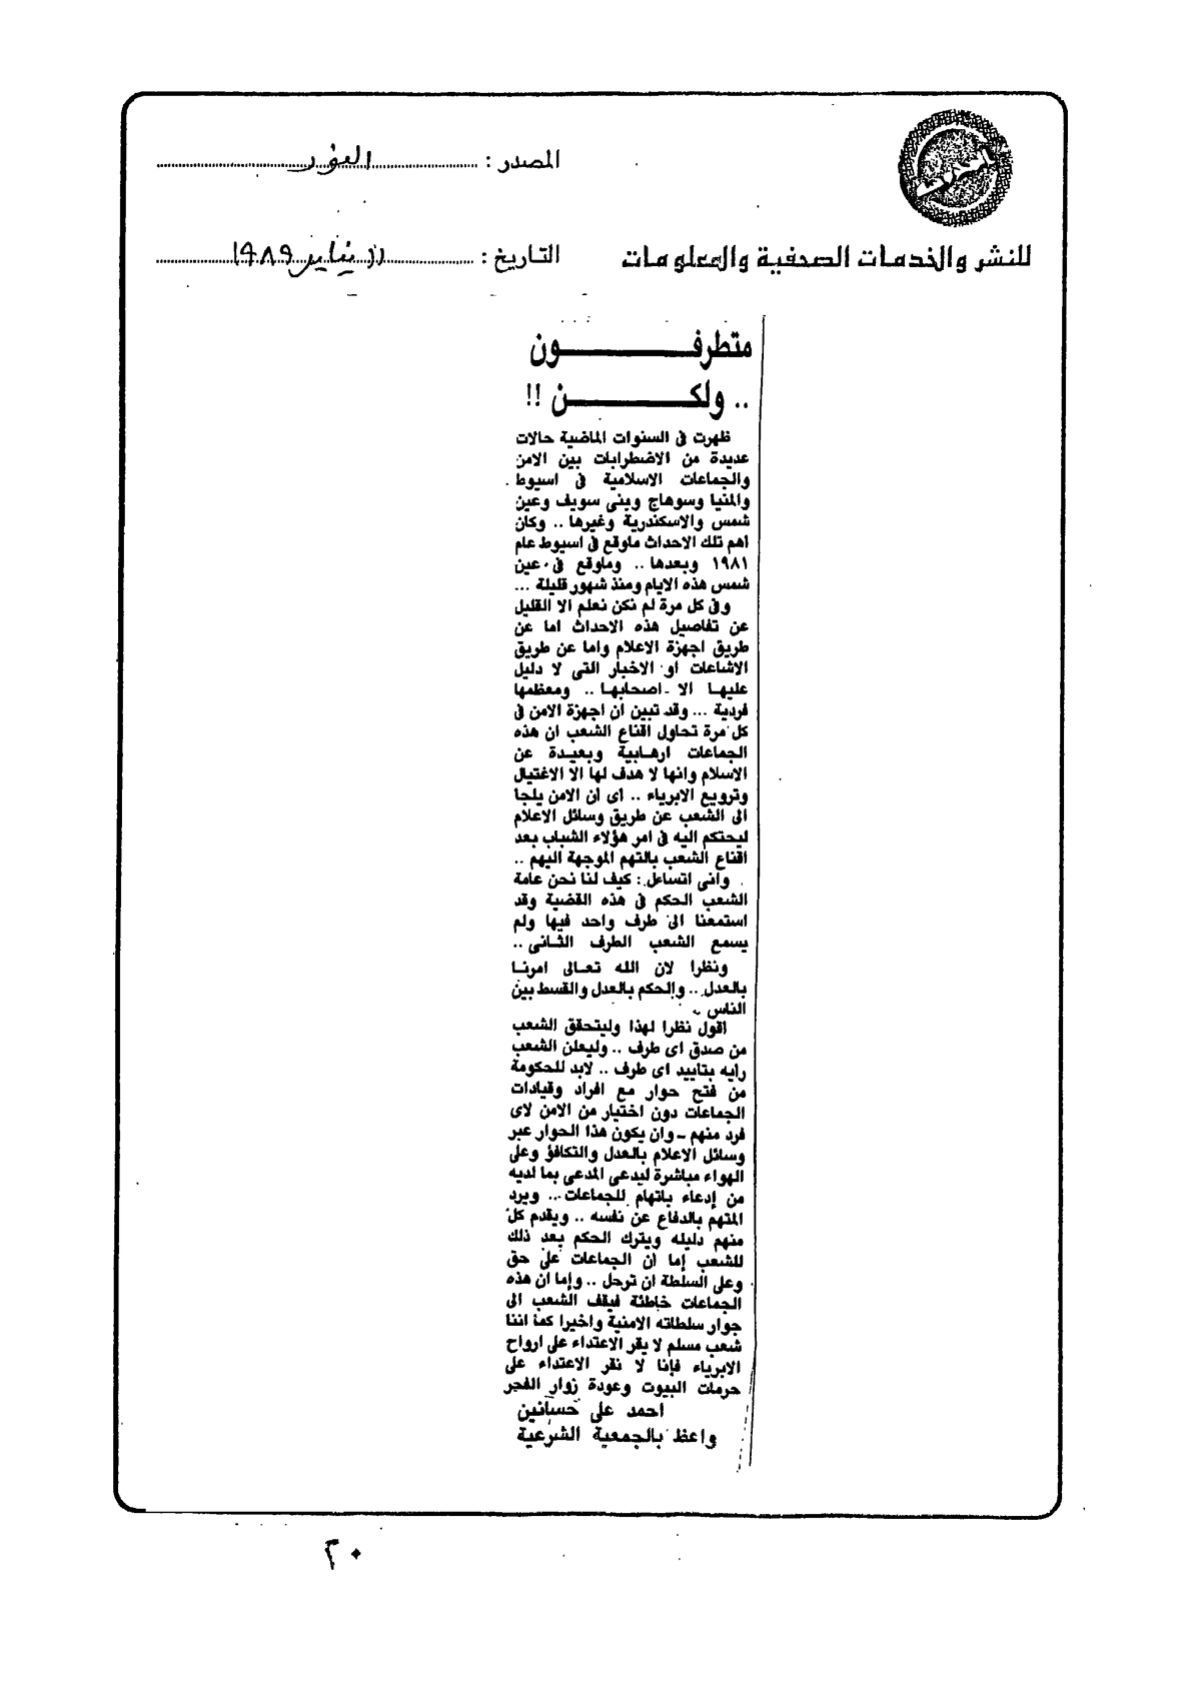 المصدر : النور
للنشر والخدمات الصحفية والمعلومات
التاريخ : ١١ يناير ١٩٨٩
متطرفون
.. ولكن !!
ظهرت فى السنوات الماضية حالات
عديدة من الاضطرابات بين الامن
والجماعات الاسلامية فى اسيوط
والمنيا وسوهاج وبنى سويف وعين
شمس والاسكندرية وغيرها .. وكان
اهم تلك الاحداث ماوقع فى اسيوط عام
١٩٨١ وبعدها .. وماوقع فى عين
شمس هذه الايام ومنذ شهور قليلة ...
وفى كل مرة لم نكن نعلم الا القليل
عن تفاصيل هذه الاحداث اما عن
طريق اجهزة الاعلام واما عن طريق
الاشاعات او الاخبار التى لا دليل
عليها الا اصحابها .. ومعظمها
فردية ... وقد تبين ان اجهزة الامن فى
كل مرة تحاول اقناع الشعب ان هذه
الجماعات ارهابية وبعيدة عن
الاسلام وانها لا هدف لها الا الاغتيال
وترويع الابرياء .. اى ان الامن يلجا
الى الشعب عن طريق وسائل الاعلام
ليحتكم اليه فى امر هؤلاء الشباب بعد
اقناع الشعب بالتهم الموجهة اليهم ..
وانى اتساءل : كيف لنا نحن عامة
الشعب الحكم فى هذه القضية وقد
استمعنا الى طرف واحد فيها ولم
يسمع الشعب الطرف الثانى ..
ونظرا لان الله تعالى امرنا
بالعدل .. والحكم بالعدل والقسط بين
الناس ..
اقول نظرا لهذا وليتحقق الشعب
من صدق اى طرف .. وليعلن الشعب
رايه بتاييد اى طرف .. لابد للحكومة
من فتح حوار مع افراد وقيادات
الجماعات دون اختيار من الامن لاى
فرد منهم ـ وان يكون هذا الحوار عبر
وسائل الاعلام بالعدل والتكافؤ وعلى
الهواء مباشرة ليدعى المدعى بما لديه
من إدعاء باتهام للجماعات .. ويرد
المتهم بالدفاع عن نفسه .. ويقدم كل
منهم دليله ويترك الحكم بعد ذلك
للشعب إما ان الجماعات على حق
وعلى السلطة ان ترحل .. وإما ان هذه
الجماعات خاطئة فيقف الشعب الى
جوار سلطاته الامنية واخيرا كما اننا
شعب مسلم لا يقر الاعتداء على ارواح
الابرياء فإنا لا نقر الاعتداء على
حرمات البيوت وعودة زوار الفجر
احمد على حسانين
واعظ بالجمعية الشرعية
٢٠